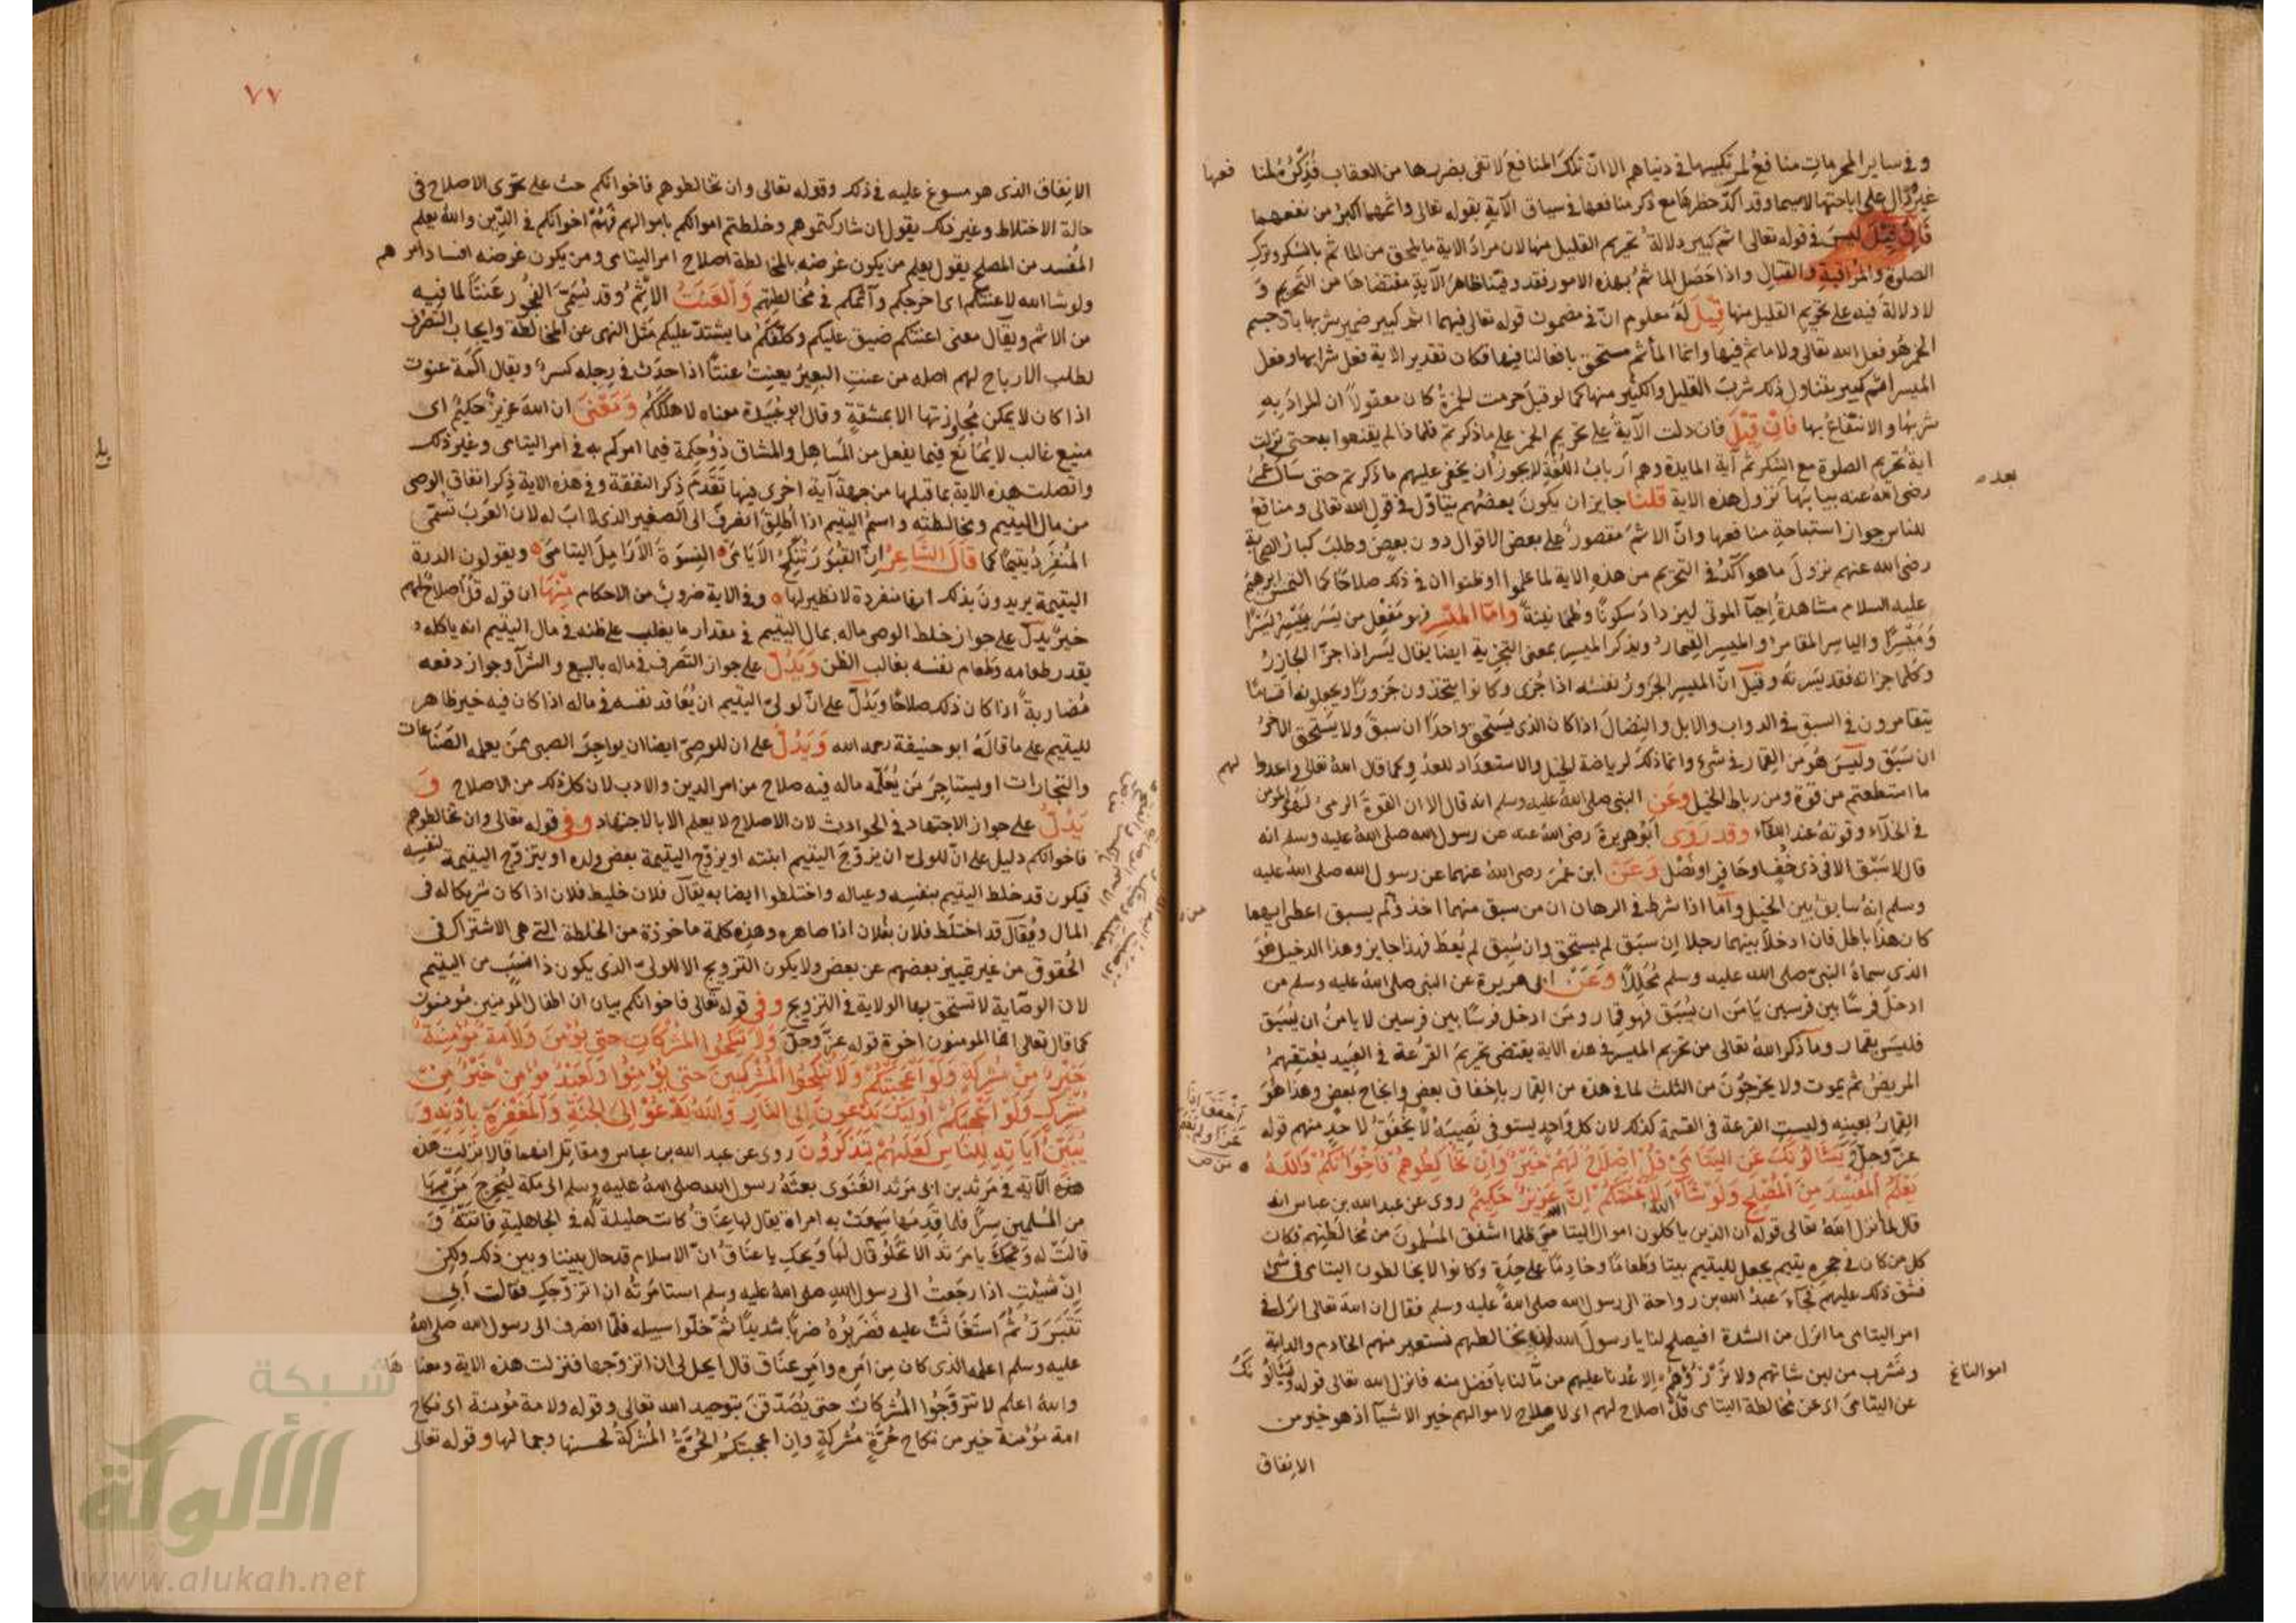 وفي ساير المحرمات منافع لمرتكبيها في دنياهم الا ان تلك المنافع لا تفي بضررها من العقاب فذكره لمنا فعها
غير دال على اباحتها لا سيما وقد اكد حظرها مع ذكر منافعها في سياق الاية بقوله تعالى واثمهما اكبر من نفعهما
فان قيل ليس في قوله تعالى اثم كبير دلالة تحريم القليل منها لان مراد الاية ما يلحق من الماثم بالسكر وترك
الصلوة والمواثبة والقتال واذا حصل الماثم بهذه الامور فقد وفينا ظاهر الآية مقتضاها من التحريم و
لا دلالة فيه على تحريم القليل منها قيل له معلوم ان في مضمون قوله تعالى فيهما اثم كبير ضمير شربها لان جسم
الخمر هو فعل الله تعالى ولا ماثم فيها وانما المأثم مستحق بافعالنا فيها فكان تقدير الاية فعل شرابها وفعل
الميسر اثم كبير يتناول ذلك شرب القليل والكثير منها كما لو قيل حرمت الخمرة كان معقولا ان المراد به
شربها والانتفاع بها فان قيل فان دلت الآية على تحريم الخمر على ما ذكرتم فلماذا لم يقنعوا به حتى نزلت
اية تحريم الصلوة مع السكر ثم آية المايدة وهم ارباب اللغة لا يجوز ان يخفى عليهم ما ذكرتم حتى سال عمر
رضي الله عنه بيانها نزول هذه الاية قلنا جايز ان يكون بعضهم يتاول في قول الله تعالى ومنافع
بعد
للناس جواز استباحة منافعها وان الاثم مقصور على بعض الاقوال دون بعض وطلب كبار الصحابة
رضي الله عنهم نزول ما هو آكد في التحريم من هذه الاية لما علموا او ظنوا ان في ذلك صلاحا كما التمس ابرهيم
عليه السلام مشاهدة احيآ الموتى ليزداد سكونا وطمانينة واما الميسر فهو مفعل من يسر ييسر يسرا
وميسرا والياسر المقامر والميسر القمار ويذكر الميسر بمعنى التجزية ايضا يقال يسر اذا جزا الجازر
وكلما جزاته فقد يسرته وقيل ان الميسر الجزور نفسه اذا جزي وكانوا يتخذون جزورا ويجعلونه اقساما
يتقامرون في السبق في الدواب والابل والنضال اذا كان الذي يستحق واحدا ان سبق ولا يستحق الاخر
ان سبق وليس هو من القمار في شيء وانما ذلك لرياضة الخيل والاستعداد للعدو كما قال الله تعالى واعدوا لهم
ما استطعتم من قوة ومن رباط الخيل وعن النبي صلى الله عليه وسلم انه قال الا ان القوة الرمي
في الخلآء وقوته عند اللقاء وقد روى ابو هريرة رضي الله عنه عن رسول الله صلى الله عليه وسلم انه
قال لا سبق الا في ذي خف او حافر او نصل وعن ابن عمر رضي الله عنهما عن رسول الله صلى الله عليه
وسلم انه سابق بين الخيل واما اذا شرط في الرهان ان من سبق منهما اخذ ولم يسبق اعطى ايهما
كان هذا باطل فان ادخلا بينهما رجلا ان سبق لم يستحق وان سبق لم يعط فهذا جايز وهذا الدخيل هو
الذي سماه النبي صلى الله عليه وسلم محللا وعن ابي هريرة عن النبي صلى الله عليه وسلم من
ادخل فرسا بين فرسين يامن ان يسبق فهو قمار ومن ادخل فرسا بين فرسين لا يامن ان يسبق
فليس بقمار وما ذكر الله تعالى من تحريم الميسر في هذه الاية يقتضي تحريم القرعة في العبيد يعتقهم
المريض ثم يموت ولا يخرجون من الثلث لما في هذه من القمار باخفاق بعض وانجاح بعض وهذا هو
القمار بعينه وليست القرعة في القسمة كذلك لان كل واحد يستوفي نصيبه لا يخفق لاحد منهم قوله
عز وجل ويسالونك عن اليتامى قل اصلاح لهم خير وان تخالطوهم فاخوانكم والله
يعلم المفسد من المصلح ولو شآء الله لاعنتكم ان الله عزيز حكيم روي عن عبد الله بن عباس انه
قال لما انزل الله تعالى قوله ان الذين ياكلون اموال اليتامى ظلما اشفق المسلمون من مخالطتهم فكان
كل من كان في حجره يتيم يجعل لليتيم بيتا وطعاما وخادما على حدة وكانوا لا يخالطون اليتامى في شئ
فشق ذلك عليهم فجآء عبد الله بن رواحة الى رسول الله صلى الله عليه وسلم فقال ان الله تعالى انزل في
امر اليتامى ما انزل من الشدة افيصلح لنا يا رسول الله ان نخالطهم نستعير منهم الخادم والدابة
ونشرب من لبن شاتهم ولا نرزؤهم الا عدنا عليهم من مالنا بافضل منه فانزل الله تعالى قوله ويسالونك
عن اليتامى اي عن مخالطة اليتامى قل اصلاح لهم اي لاصلاح لاموالهم خير الاشيآ اذ هو خير من
الانفاق
٧٧
الانفاق الذي هو مسوغ عليه في ذلك وقوله تعالى وان تخالطوهم فاخوانكم حث على تحرى الاصلاح في
حالة الاختلاط وغير ذلك يقول ان شاركتموهم وخلطتم اموالكم باموالهم فهم اخوانكم في الدين والله يعلم
المفسد من المصلح يقول يعلم من يكون غرضه بالمخالطة اصلاح امر اليتامى ومن يكون غرضه افساد امرهم
ولو شا الله لاعنتكم اي احرجكم وآثمكم في مخالطتهم والعنت الاثم وقد يسمى الفجور عنتا لما فيه
من الاثم ويقال معنى اعنتكم ضيق عليكم وكلفكم ما يشتد عليكم مثل النهي عن المخالطة وايجاب التصرف
لطلب الارباح لهم اصله من عنت البعير يعنت عنتا اذا حدث في رجله كسر ويقال اكمة عنوت
اذا كان لا يمكن مجاوزتها الا بمشقة وقال ابو عبيدة معناه لاهلككم ومعنى ان الله عزيز حكيم اي
منيع غالب لا يمانع فيما يفعل من المساهل والمشاق ذو حكمة فيما امركم به في امر اليتامى وغير ذلك
واتصلت هذه الاية بما قبلها من جهة آية اخرى فيها تقدم ذكر النفقة وفي هذه الاية ذكر انفاق الوصي
من مال اليتيم ومخالطته واسم اليتيم اذا اطلق انصرف الى الصغير الذي لا اب له لان العرب تسمي
المنفرد يتيما كما قال الشاعر ان القبور تنكح الايامى النسوة الارامل اليتامى ويقولون الدرة
اليتيمة يريدون بذلك انها منفردة لا نظير لها وفي الاية ضروب من الاحكام منها ان قوله قل اصلاح لهم
خير يدل على جواز خلط الوصي ماله بمال اليتيم في مقدار ما يغلب على ظنه في مال اليتيم انه ياكله و
يقدر طعامه وطعام نفسه بغالب الظن ويدل على جواز التصرف في ماله بالبيع والشرآ وجواز دفعه
مضاربة اذا كان ذلك صلاحا ويدل على ان لولي اليتيم ان يعاقد نفسه في ماله اذا كان فيه خير ظاهر
لليتيم على ما قاله ابو حنيفة رحمه الله ويدل على ان للوصي ايضا ان يواجر الصبي ممن يعلمه الصناعات
والتجارات او يستاجر من يعلمه ماله فيه صلاح من امر الدين والادب لان كل ذلك من الاصلاح و
يدل على جواز الاجتهاد في الحوادث لان الاصلاح لا يعلم الا بالاجتهاد وفي قوله تعالى وان تخالطوهم
فاخوانكم دليل على ان للولي ان يزوج اليتيم ابنته او يزوج اليتيمة بعض ولده او يتزوج اليتيمة لنفسه
فيكون قد خلط اليتيم بنفسه وعياله واختلطوا ايضا به يقال فلان خليط فلان اذا كان شريكا له في
المال ويقال قد اختلط فلان بفلان اذا صاهره وهذه كلمة ماخوذة من الخلطة التي هي الاشتراك في
الحقوق من غير تمييز بعضهم عن بعض ولا يكون التزويج الا للولي الذي يكون ذا نسب من اليتيم
لان الوصاية لا تستحق بها الولاية في التزويج وفي قوله تعالى فاخوانكم بيان ان اطفال المومنين مومنون
كما قال تعالى انما المومنون اخوة قوله عز وجل ولا تنكحوا المشركات حتى يؤمن ولامة مؤمنة
خير من مشركة ولو اعجبتكم ولا تنكحوا المشركين حتى يؤمنوا ولعبد مؤمن خير من
مشرك ولو اعجبكم اولئك يدعون الى النار والله يدعو الى الجنة والمغفرة باذنه و
يبين آياته للناس لعلهم يتذكرون روي عن عبد الله بن عباس ومقاتل انهما قالا نزلت هذه
الآية في مرثد بن ابي مرثد الغنوى بعثه رسول الله صلى الله عليه وسلم الى مكة ليخرج من بها
من المسلمين سرا فلما قدمها سمعت به امراة يقال لها عناق كانت خليلة له في الجاهلية فاتته و
قالت له ويحك يا مرثد الا تخلو قال لها ويحك يا عناق ان الاسلام قد حال بيننا وبين ذلك ولكن
ان شئت اذا رجعت الى رسول الله صلى الله عليه وسلم استامرته ان اتزوجك فقالت ابي
تتبرر ثم استغاثت عليه فضربوه ضربا شديدا ثم خلوا سبيله فلما انصرف الى رسول الله صلى الله
عليه وسلم اعلمه الذي كان من امره وامر عناق قال ايحل لي ان اتزوجها فنزلت هذه الاية ومعناها
والله اعلم لا تتزوجوا المشركات حتى يصدقن بتوحيد الله تعالى وقوله ولامة مؤمنة اي نكاح
امة مؤمنة خير من نكاح حرة مشركة وان اعجبتكم الحرة المشركة لحسنها وجمالها وقوله تعالى
شبكة
الألوكة
www.alukah.net